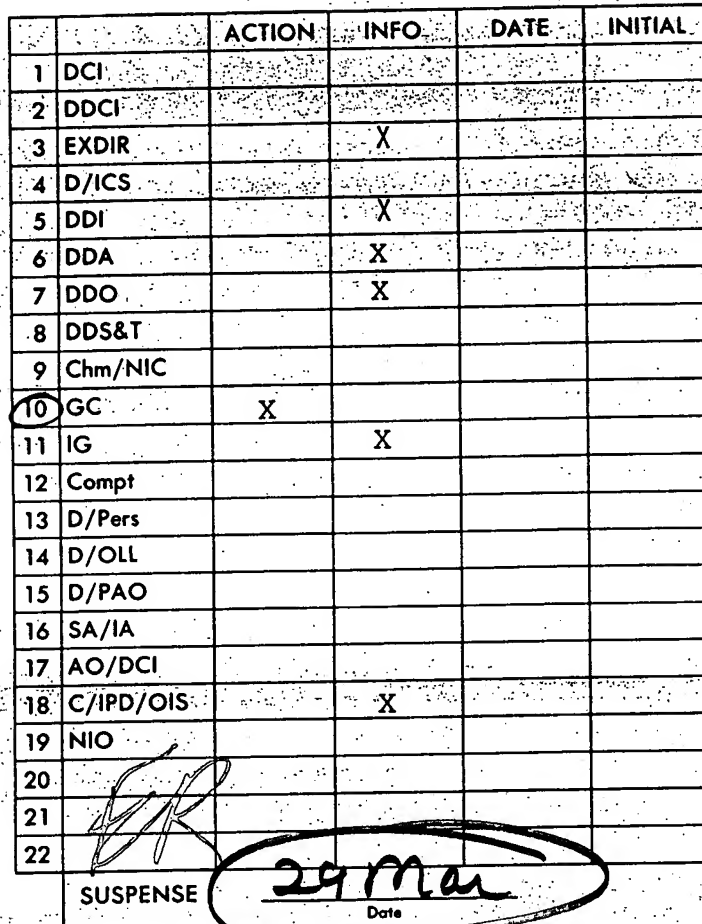 ACTION INFO DATE INITIAL
1 DCI
2 DDCI
3 EXDIR X
4 D/ICS
5 DDI X
6 DDA X
7 DDO X
8 DDS&T
9 Chm/NIC
10 GC X
11 IG X
12 Compt
13 D/Pers
14 D/OLL
15 D/PAO
16 SA/IA
17 AO/DCI
18 C/IPD/OIS X
19 NIO
20
21 ER
22
SUSPENSE 29 Mar
Date